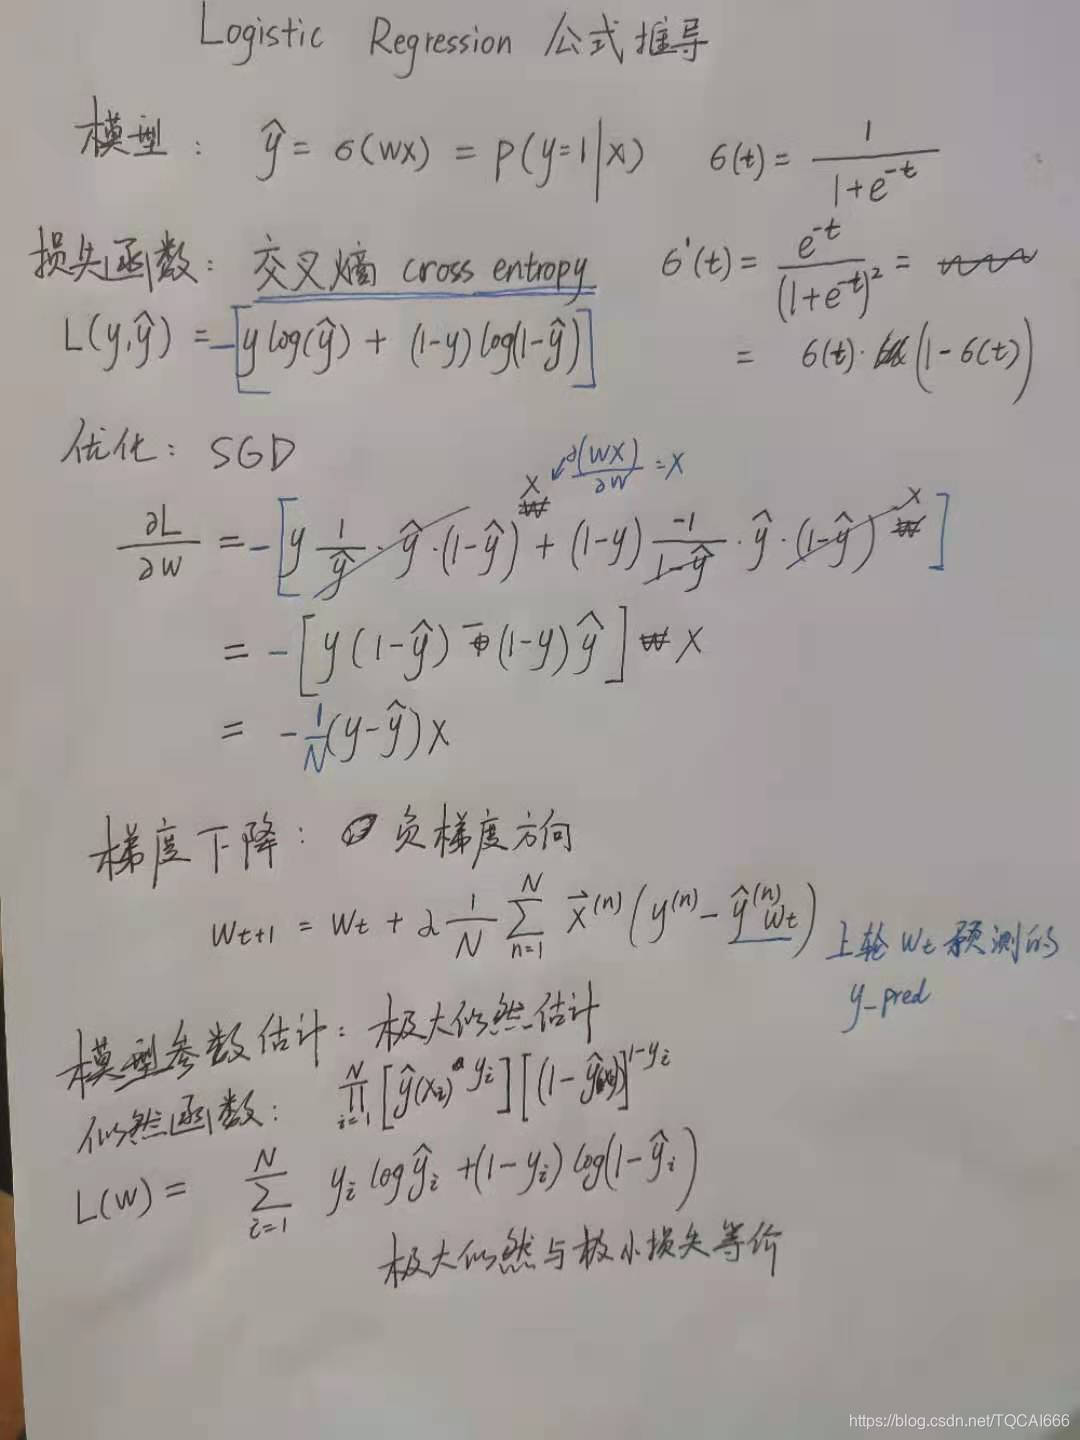 Logistic Regression 公式推导
模型: ŷ = σ(wx) = p(y=1|x) σ(t) = 1/(1+e^{-t})
损失函数: 交叉熵 cross entropy σ'(t) = e^{-t}/(1+e^{-t})² =
L(y,ŷ) = -[y log(ŷ) + (1-y) log(1-ŷ)] = σ(t)·(1-σ(t))
优化: SGD
∂(wx)/∂w = x
∂L/∂w = -[y 1/ŷ · ŷ·(1-ŷ) x + (1-y) -1/(1-ŷ) · ŷ·(1-ŷ) x]
= -[y(1-ŷ) - (1-y)ŷ] x
= -1/N (y-ŷ)x
梯度下降: 负梯度方向
w_{t+1} = w_t + α 1/N ∑_{n=1}^{N} x⃗^{(n)} (y^{(n)} - ŷ^{(n)}_{w_t})
上轮 w_t 预测的
y_pred
模型参数估计: 极大似然估计
似然函数: ∏_{i=1}^{N} [ŷ(x_i)^{y_i}][(1-ŷ(x_i))]^{1-y_i}
L(w) = ∑_{i=1}^{N} y_i log ŷ_i + (1-y_i) log(1-ŷ_i)
极大似然与极小损失等价
https://blog.csdn.net/TQCAI666